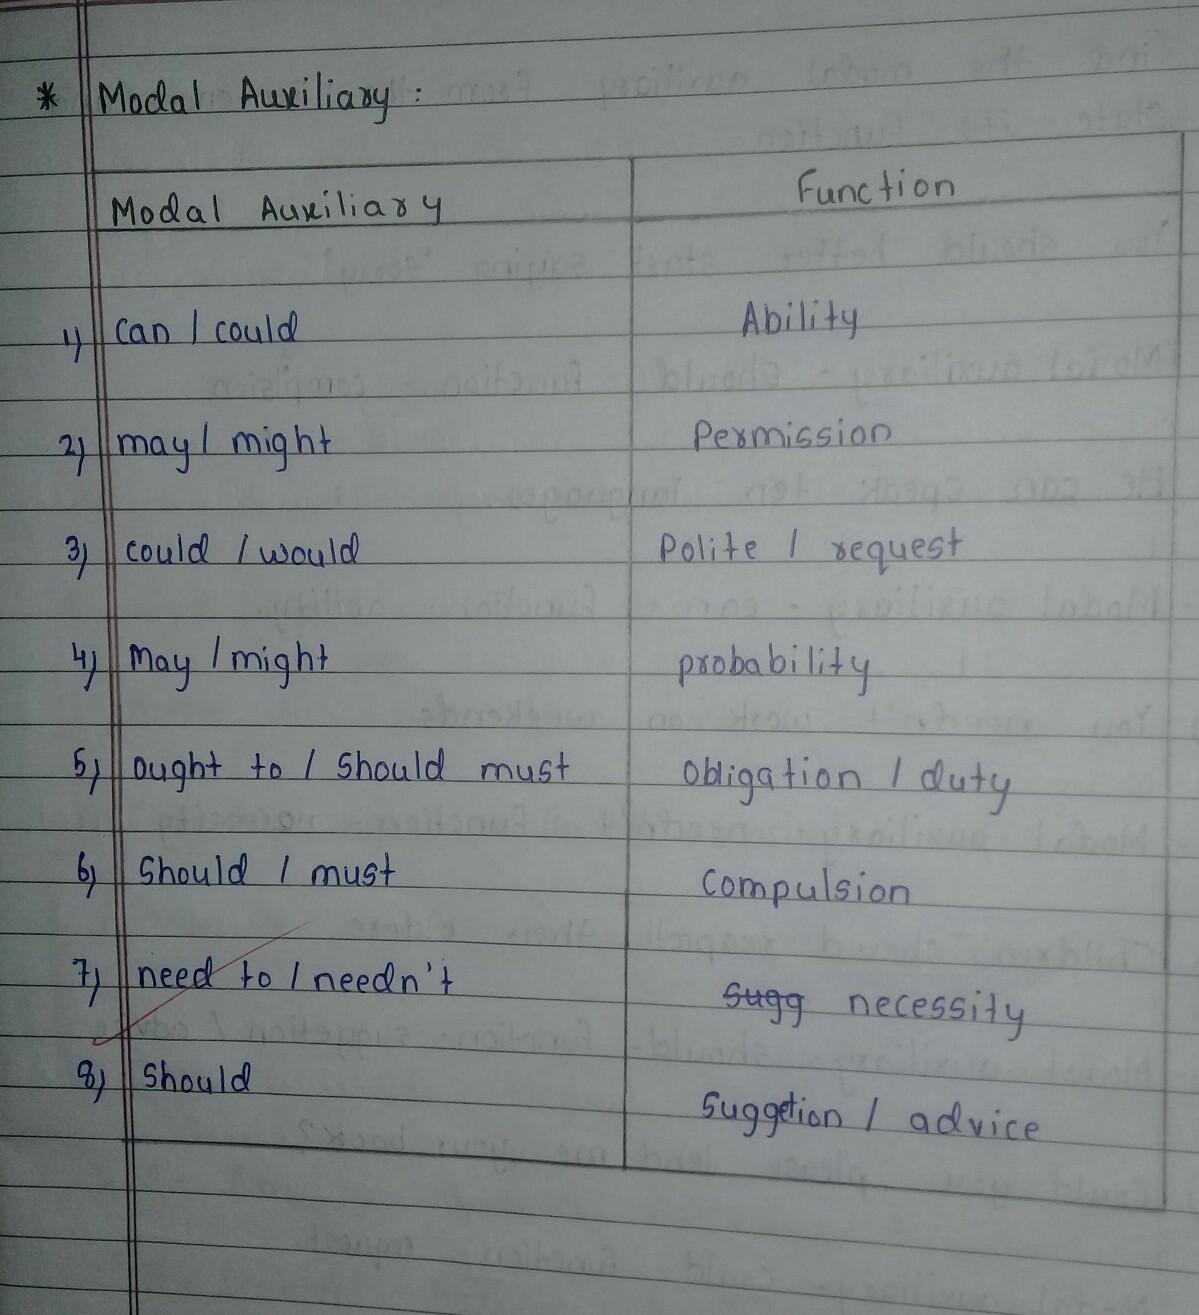 * Modal Auxiliary :
Modal Auxiliary Function
1) can / could Ability
2) may / might Permission
3) could / would Polite / request
4) May / might probability
5) ought to / should must obligation / duty
6) should / must compulsion
7) need to / needn't sugg necessity
8) should suggetion / advice